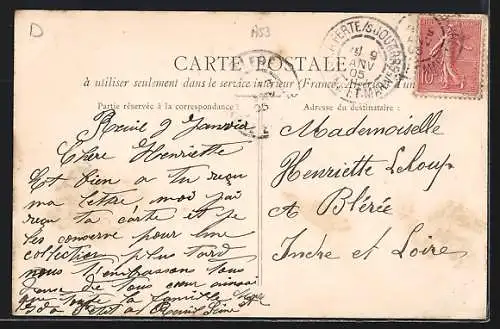 D
A53
CARTE POSTALE
à utiliser seulement dans le service intérieur (France, Algérie et Tunisie)
Partie réservée à la correspondance
Adresse du destinataire :
LA FERTE/S/JOUARRE
9
JANV
05
Reuil 9 Janvier
Chère Henriette
Et bien a tu reçu
ma lettre moi j'ai
reçu ta carte et je
les conserve pour une
collection plus tard
nous t'embrassons tous
de tous cœur ainsi
que toute la famille
Mademoiselle
Henriette Leloup
A Bléré
Indre et Loire
10